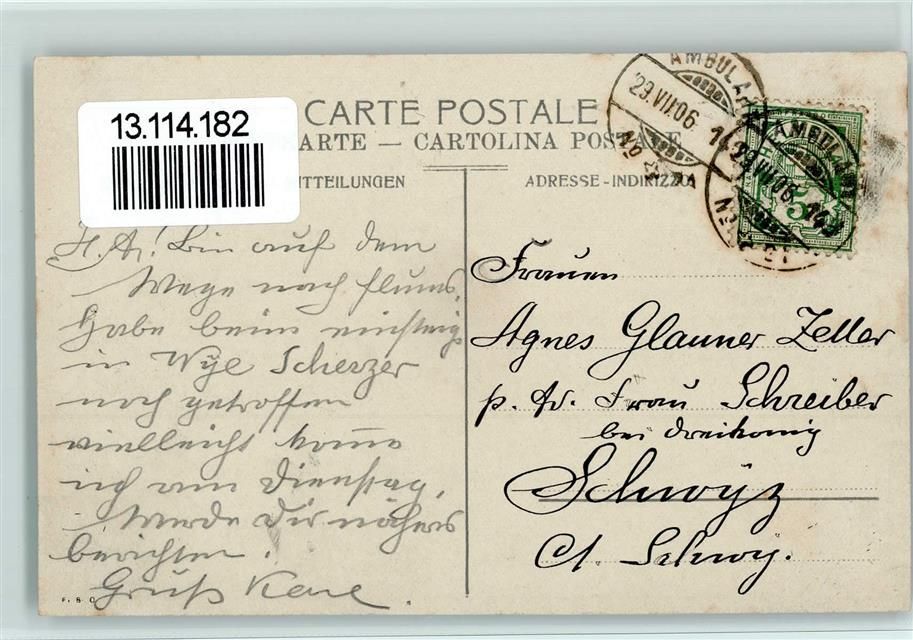 13.114.182
CARTE POSTALE
KARTE — CARTOLINA POSTALE
ITTEILUNGEN
ADRESSE-INDIRIZZO
AMBULANT
29.VII.06
No
AMBULANT
29.VII.06
5
Bin auf dem
Wege nach Flums.
Habe beim einsteig
in Wyl Scherzer
noch getroffen
vielleicht kome
ich am Dienstag,
Werde Dir näheres
berichten.
Gruß Karl.
Frauen
Agnes Glauner Zeller
p. Ad. Frau Schreiber
bei dreikönig
Schwÿz
Ct. Schwy.